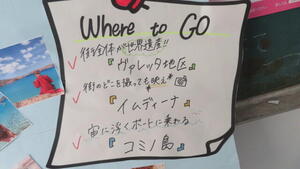 Where to GO
街全体が世界遺産!!
『ヴァレッタ地区』
街のどこを撮っても映え*
『イムディーナ』
宙に浮くボートに乗れる
『コミノ島』